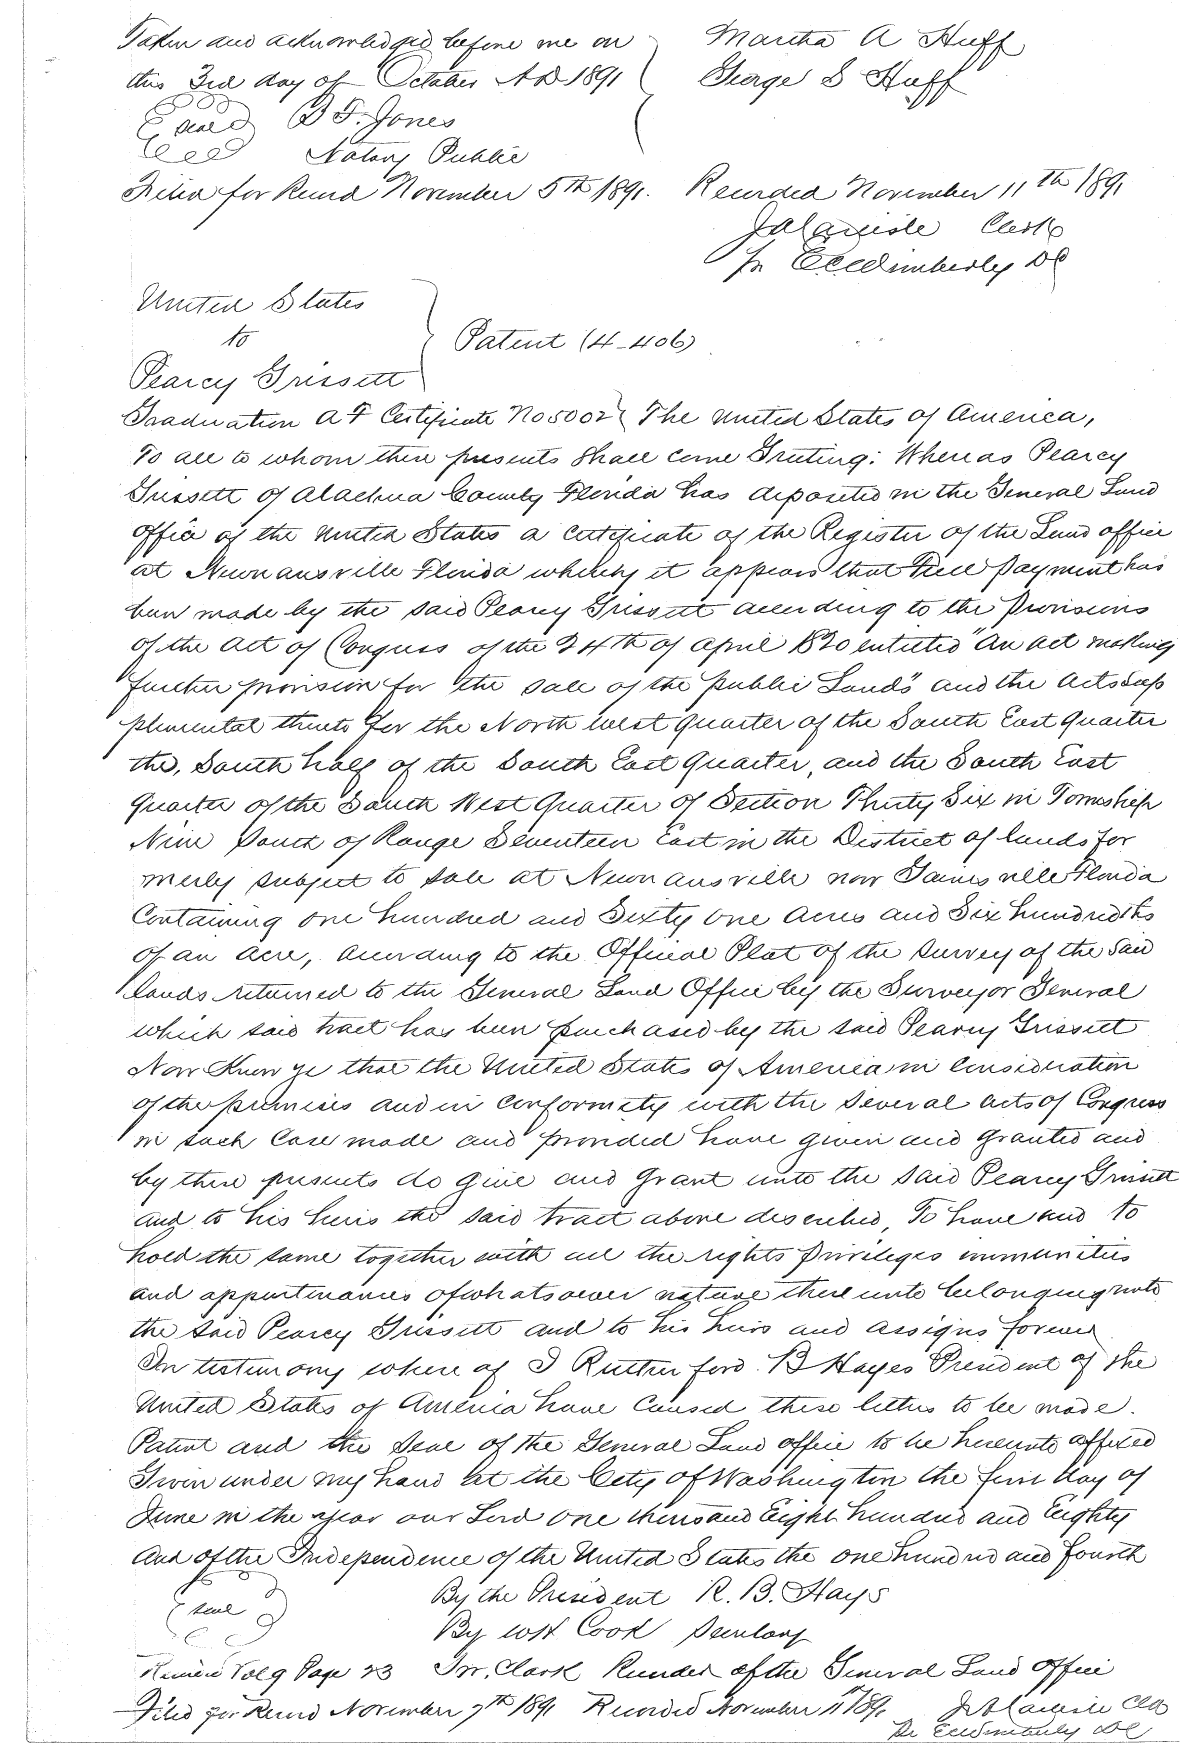 Taken and acknowledged before me on
this 3rd day of October A D 1891
Martha A Huff
George S Huff
Seal
B F. Jones
Notary Public
Filed for Record November 5th 1891. Recorded November 11th 1891
Clerk
Pr Wimberly DC
United States
to
Pearcy Grissett
Patent (4-406)
Graduation A F Certificate No 5002 The United States of America,
To all to whom these presents shall come Greeting: Whereas Pearcy
Grissett of Alachua County Florida has deposited in the General Land
office of the United States a certificate of the Register of the Land office
at Newnansville Florida whereby it appears that Full Payment has
been made by the said Pearcy Grissett according to the Provisions
of the Act of Congress of the 24th of April 1820 entitled "An act making
further provision for the sale of the public Lands" and the Acts sup
plemental thereto for the North west quarter of the South East Quarter
the, South half of the South East Quarter, and the South East
Quarter of the South West Quarter of Section Thirty Six in Township
Nine South of Range Seventeen East in the District of lands for
merly subject to sale at Newnansville now Gainesville Florida
Containing one hundred and Sixty one Acres and Six hundredths
of an acre, according to the Official Plat of the survey of the said
lands returned to the General Land Office by the Surveyor General
which said tract has been purchased by the said Pearcy Grissett
Now Know ye that the United States of America in Consideration
of the premises and in conformity with the several acts of Congress
in such Case made and provided have given and granted and
by these presents do give and grant unto the said Pearcy Grissett
and to his heirs the said tract above described, To have and to
hold the same together with all the rights Privileges immunities
and appurtinances of whatsoever nature there unto belonging unto
the said Pearcy Grissett and to his heirs and assigns forever
In testimony where of I Rutherford B Hayes President of the
United States of America have Caused these letters to be made.
Patent and the seal of the General Land office to be hereunto affixed
Given under my hand at the City of Washington the first day of
June in the year our Lord one thousand Eight hundred and Eighty
And of the Independence of the United States the one hundred and fourth
Seal
By the President R. B. Hays
By WH Cook Secretary
Vol 9 Page 23 Clark Recorder of the General Land office
Filed for Record November 7th 1891 Recorded November 11th 1891
Clk
Pr Wimberly DC